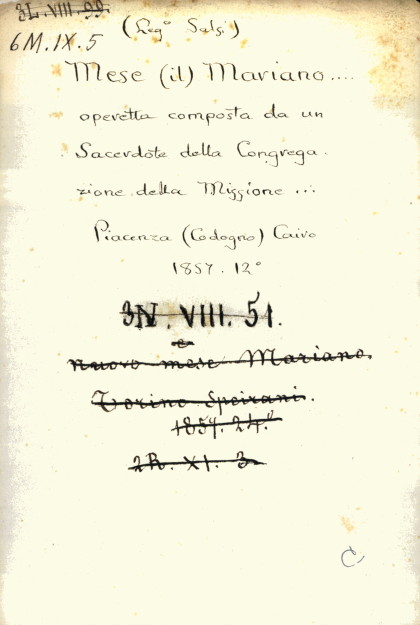 3L.VIII.99.
6M.IX.5
(Leg° Salsi)
Mese (il) Mariano....
operetta composta da un
Sacerdote della Congrega-
zione della Missione ...
Piacenza (Codogno) Cairo
1857. 12°
3N.VIII.51.
e
nuovo mese Mariano.
Torino Speirani.
1857. 24°
2R. XI. 3
C